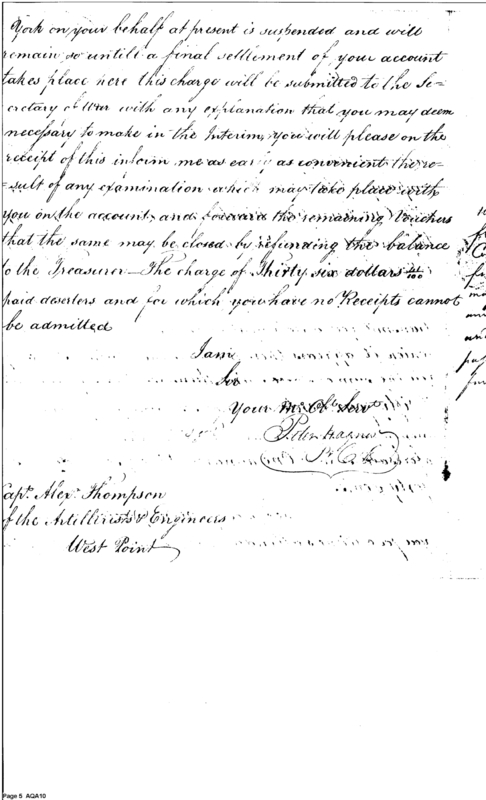 York on your behalf at present is suspended and will
remain so untill a final settlement of your account
takes place here this charge will be submitted to the Se=
cretary of War with any explanation that you may deem
necessary to make in the Interim, you will please on the
receipt of this inform me as early as convenient the re=
=sult of any examination which may take place with
you on the account, and forward the remaining Vouchers
that the same may be closed by refunding the balance
to the Treasurer — The charge of Thirty six dollars /100
paid deserters and for which you have no Receipts cannot
be admitted
I am
Sir
Your Mo Ob Servt
Peter Hagner
Capt. Alexr. Thompson
of the Artillerists & Engineers
West Point
Page 5 AQA10